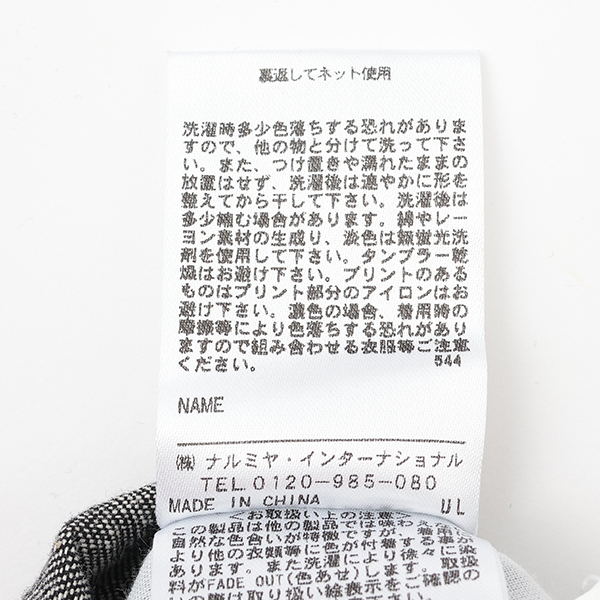 裏返してネット使用
洗濯時多少色落ちする恐れがありま
すので、他の物と分けて洗って下さ
い。また、つけ置きや濡れたままの
放置はせず、洗濯後は速やかに形を
整えてから干して下さい。洗濯後は
多少縮む場合があります。綿やレー
ヨン素材の生成り、淡色は無蛍光洗
剤を使用して下さい。タンブラー乾
燥はお避け下さい。プリントのある
ものはプリント部分のアイロンはお
避け下さい。濃色の場合、着用時の
摩擦等により色落ちする恐れがあり
ますので組み合わせる衣服等ご注意
ください。 544
NAME
㈱ ナルミヤ・インターナショナル
TEL.0120-985-080
MADE IN CHINA UL
お取扱い上の注意
この製品は他の製品
自然な色合いが特徴ですが、着る
より他の衣類等に色が付着する
あります。また洗濯により徐々
料がFADE OUT(色あせ)します。
の際は取り扱い絵表示をご確認の